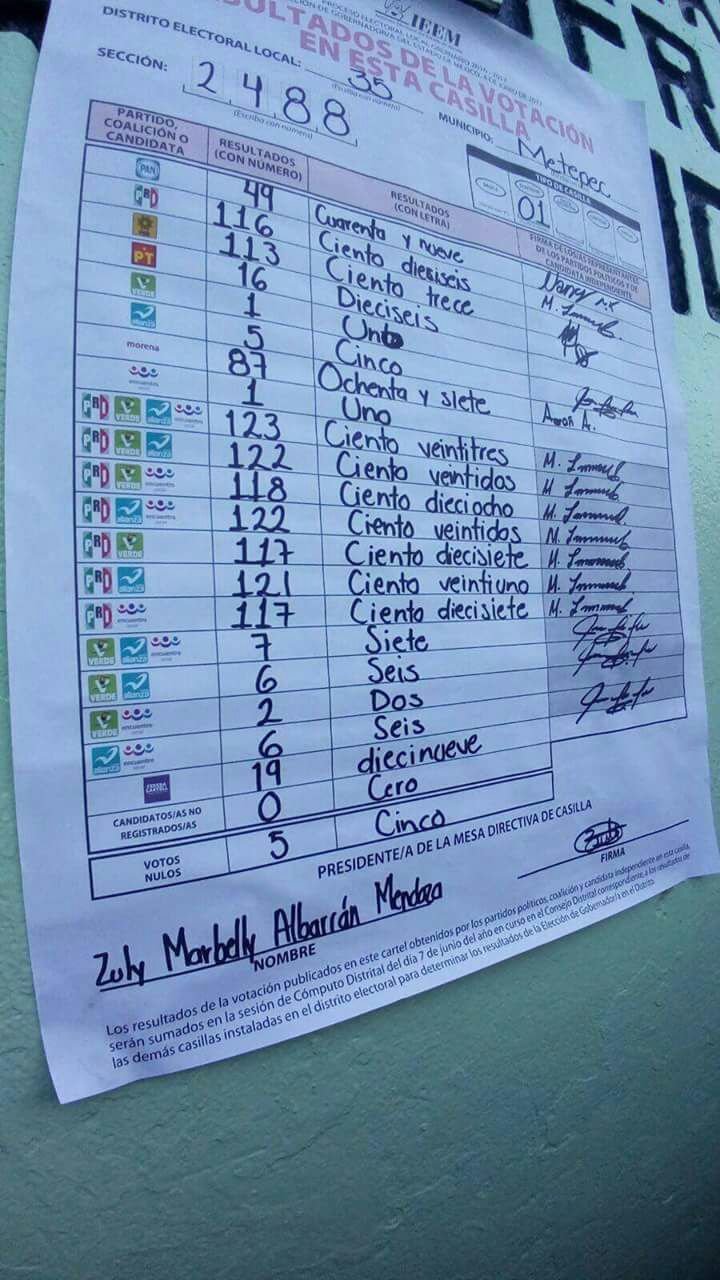 IEEM
PROCESO ELECTORAL LOCAL ORDINARIO 2016 - 2017
ELECCIÓN DE GOBERNADOR/A DEL ESTADO DE MÉXICO, 4 DE JUNIO DE 2017
RESULTADOS DE LA VOTACIÓN
EN ESTA CASILLA
DISTRITO ELECTORAL LOCAL: 35
(Escriba con número)
SECCIÓN: 2488
(Escriba con número)
MUNICIPIO: Metepec
TIPO DE CASILLA
01
PARTIDO, COALICIÓN O CANDIDATA RESULTADOS (CON NÚMERO) RESULTADOS (CON LETRA) FIRMA DE LOS/AS REPRESENTANTES DE LOS PARTIDOS POLÍTICOS Y DE CANDIDATA INDEPENDIENTE
PAN 49 Cuarenta y nueve
PRD 116 Ciento dieciseis
113 Ciento trece
PT 16 Dieciseis
VERDE 1 Uno
alianza 5 Cinco
morena 87 Ochenta y siete
encuentro social 1 Uno Aaron A.
PRD VERDE alianza encuentro social 123 Ciento veintitres
PRD VERDE alianza 122 Ciento veintidos
PRD VERDE encuentro social 118 Ciento dieciocho
PRD alianza encuentro social 122 Ciento veintidos
PRD VERDE 117 Ciento diecisiete
PRD alianza 121 Ciento veintiuno
PRD encuentro social 117 Ciento diecisiete
VERDE alianza encuentro social 7 Siete
VERDE alianza 6 Seis
VERDE encuentro social 2 Dos
alianza encuentro social 6 Seis
19 diecinueve
CANDIDATOS/AS NO REGISTRADOS/AS 0 Cero
VOTOS NULOS 5 Cinco
PRESIDENTE/A DE LA MESA DIRECTIVA DE CASILLA
Zuly Marbelly Albarrán Mendoza
NOMBRE
FIRMA
Los resultados de la votación publicados en este cartel obtenidos por los partidos políticos, coalición y candidata independiente en esta casilla,
serán sumados en la sesión de Cómputo Distrital del día 7 de junio del año en curso en el Consejo Distrital correspondiente, a los resultados de
las demás casillas instaladas en el distrito electoral para determinar los resultados de la Elección de Gobernador/a en el Distrito.